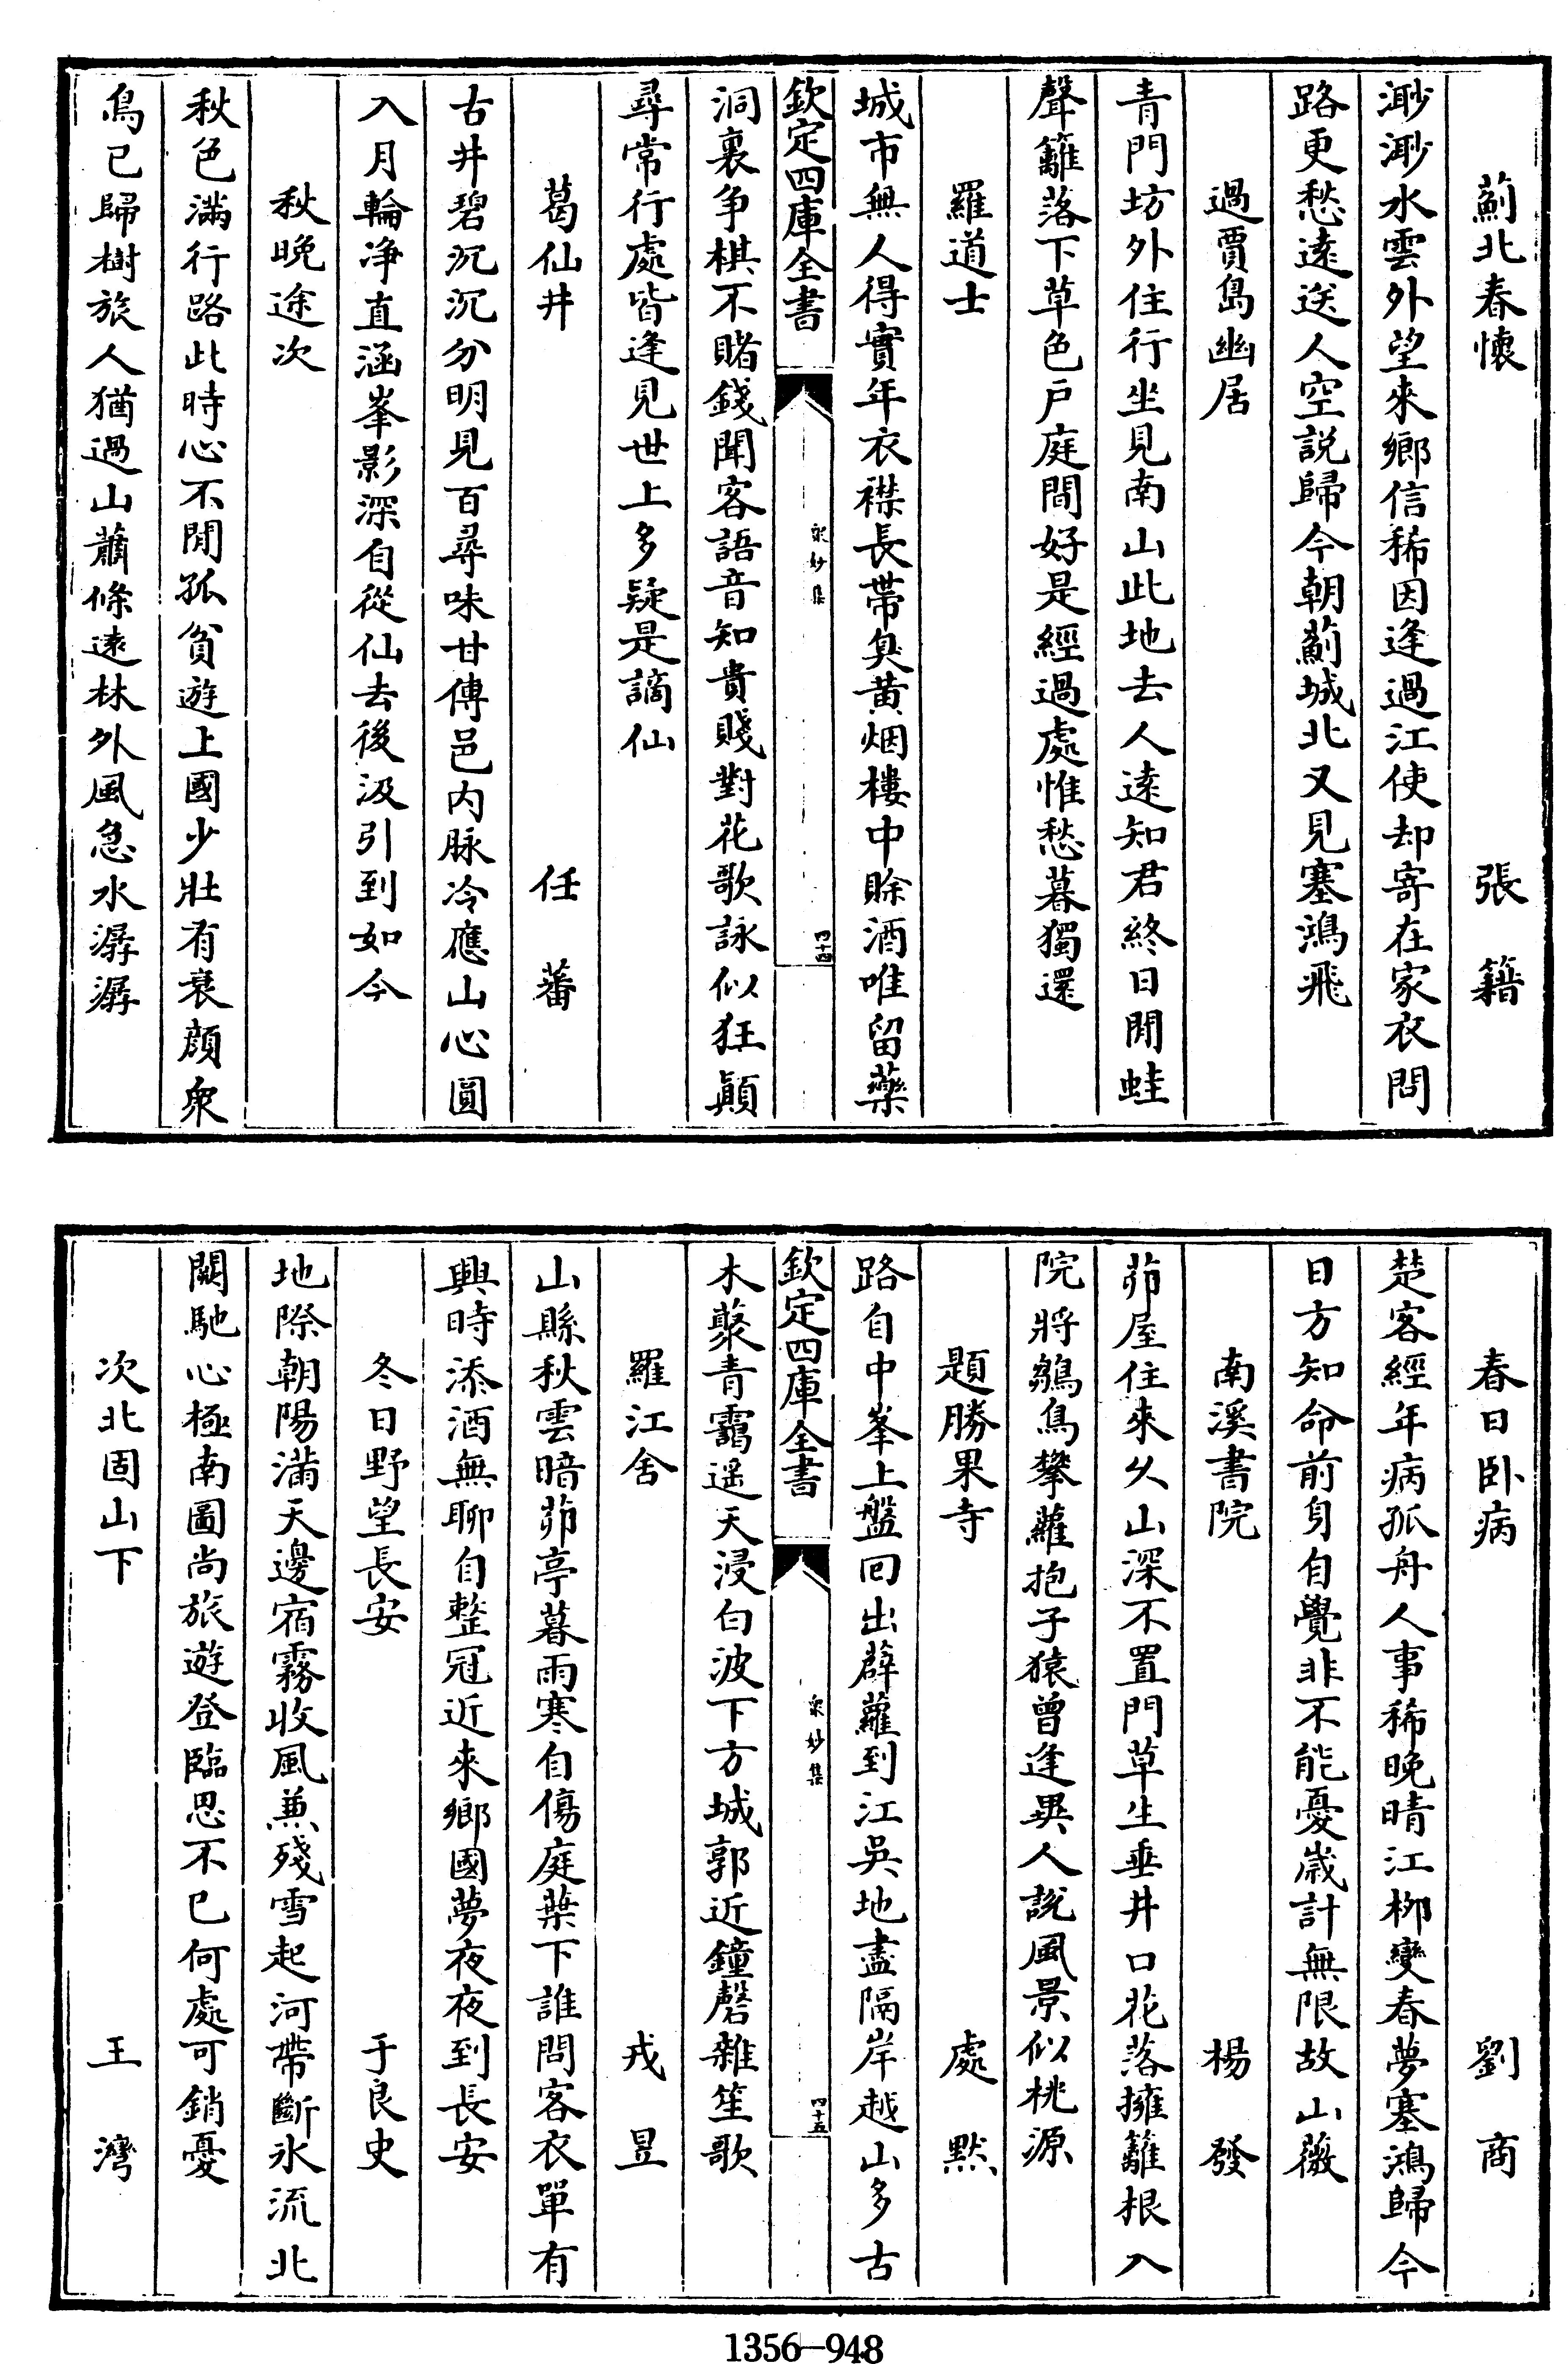 薊北春懷　張籍
渺渺水雲外望來鄉信稀因逢過江使却寄在家衣問
路更愁遠送人空説歸今朝薊城北又見塞鴻飛
過賈島幽居
青門坊外住行坐見南山此地去人遠知君終日閒蛙
聲籬落下草色戸庭間好是經過處惟愁暮獨還
羅道士
城市無人得實年衣襟長帶臭黄烟樓中賒酒唯留藥
欽定四庫全書
衆妙集
四十四
洞裏争棋不賭錢聞客語音知貴賤對花歌詠似狂顛
尋常行處皆逢見世上多疑是謫仙
葛仙井　任蕃
古井碧沉沉分明見百尋味甘傳邑内脉冷應山心圓
入月輪净直涵峯影深自從仙去後汲引到如今
秋晚途次
秋色滿行路此時心不閒孤貧遊上國少壯有衰顔衆
鳥已歸樹旅人猶過山蕭條遠林外風急水潺潺
春日卧病　劉商
楚客經年病孤舟人事稀晚晴江柳變春夢塞鴻歸今
日方知命前身自覺非不能憂歲計無限故山薇
南溪書院　楊發
茆屋住來久山深不置門草生垂井口花落擁籬根入
院將鶵鳥攀蘿抱子猿曾逢異人説風景似桃源
題勝果寺　處黙
路自中峯上盤回出薜蘿到江吳地盡隔岸越山多古
欽定四庫全書
衆妙集
四十五
木藂青靄遥天浸白波下方城郭近鐘磬雜笙歌
羅江舍　戎昱
山縣秋雲暗茆亭暮雨寒自傷庭葉下誰問客衣單有
興時添酒無聊自整冠近來鄉國夢夜夜到長安
冬日野望長安　于良史
地際朝陽滿天邊宿霧收風兼殘雪起河帶斷氷流北
闕馳心極南圖尚旅遊登臨思不已何處可銷憂
次北固山下　王灣
1356—948